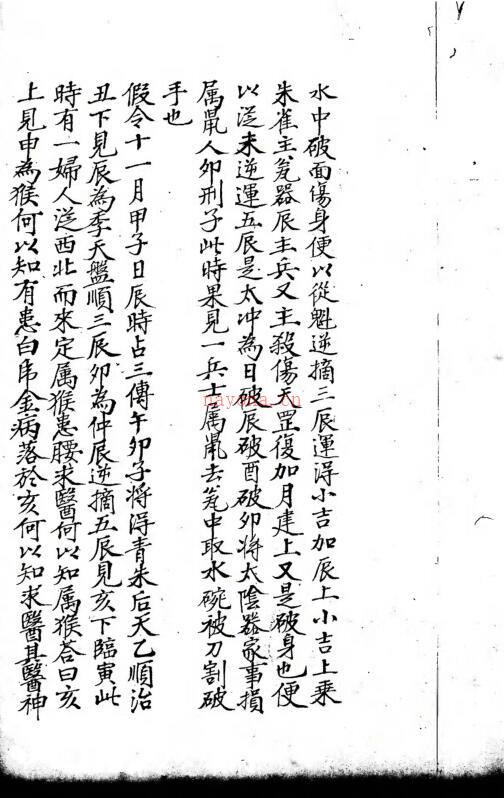 水中破面傷身便以從魁逆摘三辰運得小吉加辰上小吉上乘
朱雀主瓮器辰主兵又主殺傷天罡復加月建上又是破身也便
以從未逆運五辰是太冲為日破辰破酉破卯將太陰器家事損
属鼠人卯刑子此時果見一兵士属鼠去瓮中取水碗被刀割破
手也
假令十一月甲子日辰時占三傳午卯子將得青朱后天乙順治
丑下見辰為季天盤順三辰卯為仲辰逆摘五辰見亥下臨寅此
時有一婦人從西北而來定属猴患腰求醫何以知属猴答曰亥
上見申為猴何以知有患白帍金病落於亥何以知求醫其醫神